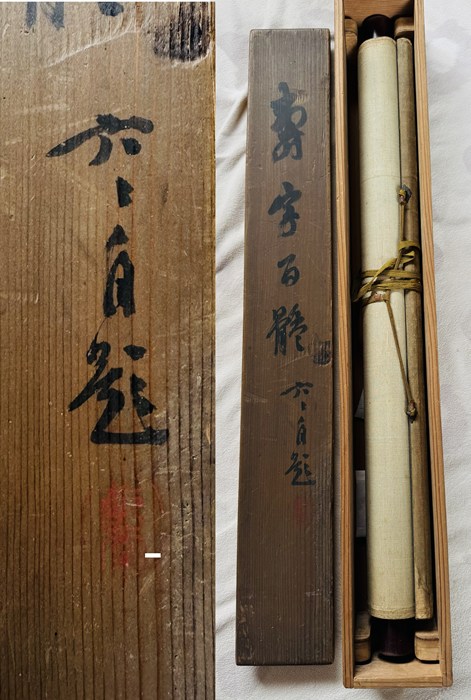 六々自題
壽字百體
六々自題